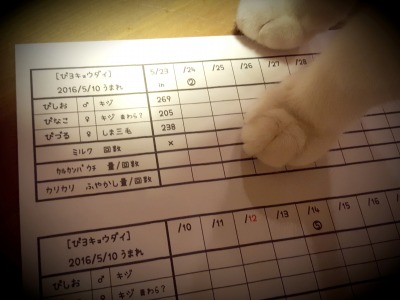 [ぴヨキョウダイ] 5/23 /24 /25 /26 /27 /28
2016/5/10 うまれ in ②
ぴしお ♂ キジ 269
ぴなこ ♀ キジ まわら? 205
ぴづる ♀ しま三毛 238
ミルク 回数 ×
カルカンパウチ 量/回数
カリカリ ふやかし量/回数
[ぴヨキョウダイ] /10 /11 /12 /13 /14 /15 /16
2016/5/10 うまれ ⑤
ぴしお ♂ キジ
ぴなこ ♀ キジ まわら?